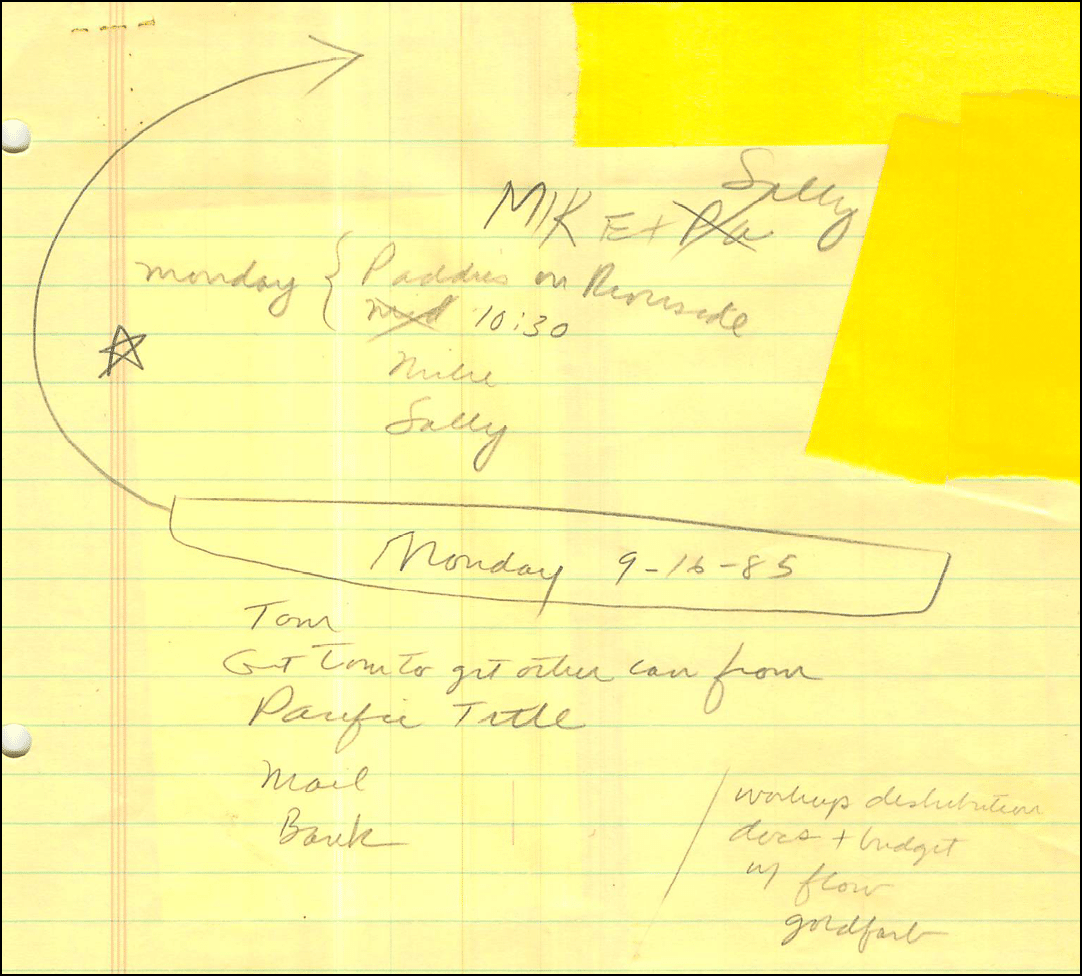 Sally
MIKE + Pa
Monday { Paddies on Riverside
10:30
Mike
Sally
Monday 9-16-85
Tom
Get Tom to get other can from
Pacific Title
Mail
Bank
workup distribution
docs + budget
w/ flow
goldfarb